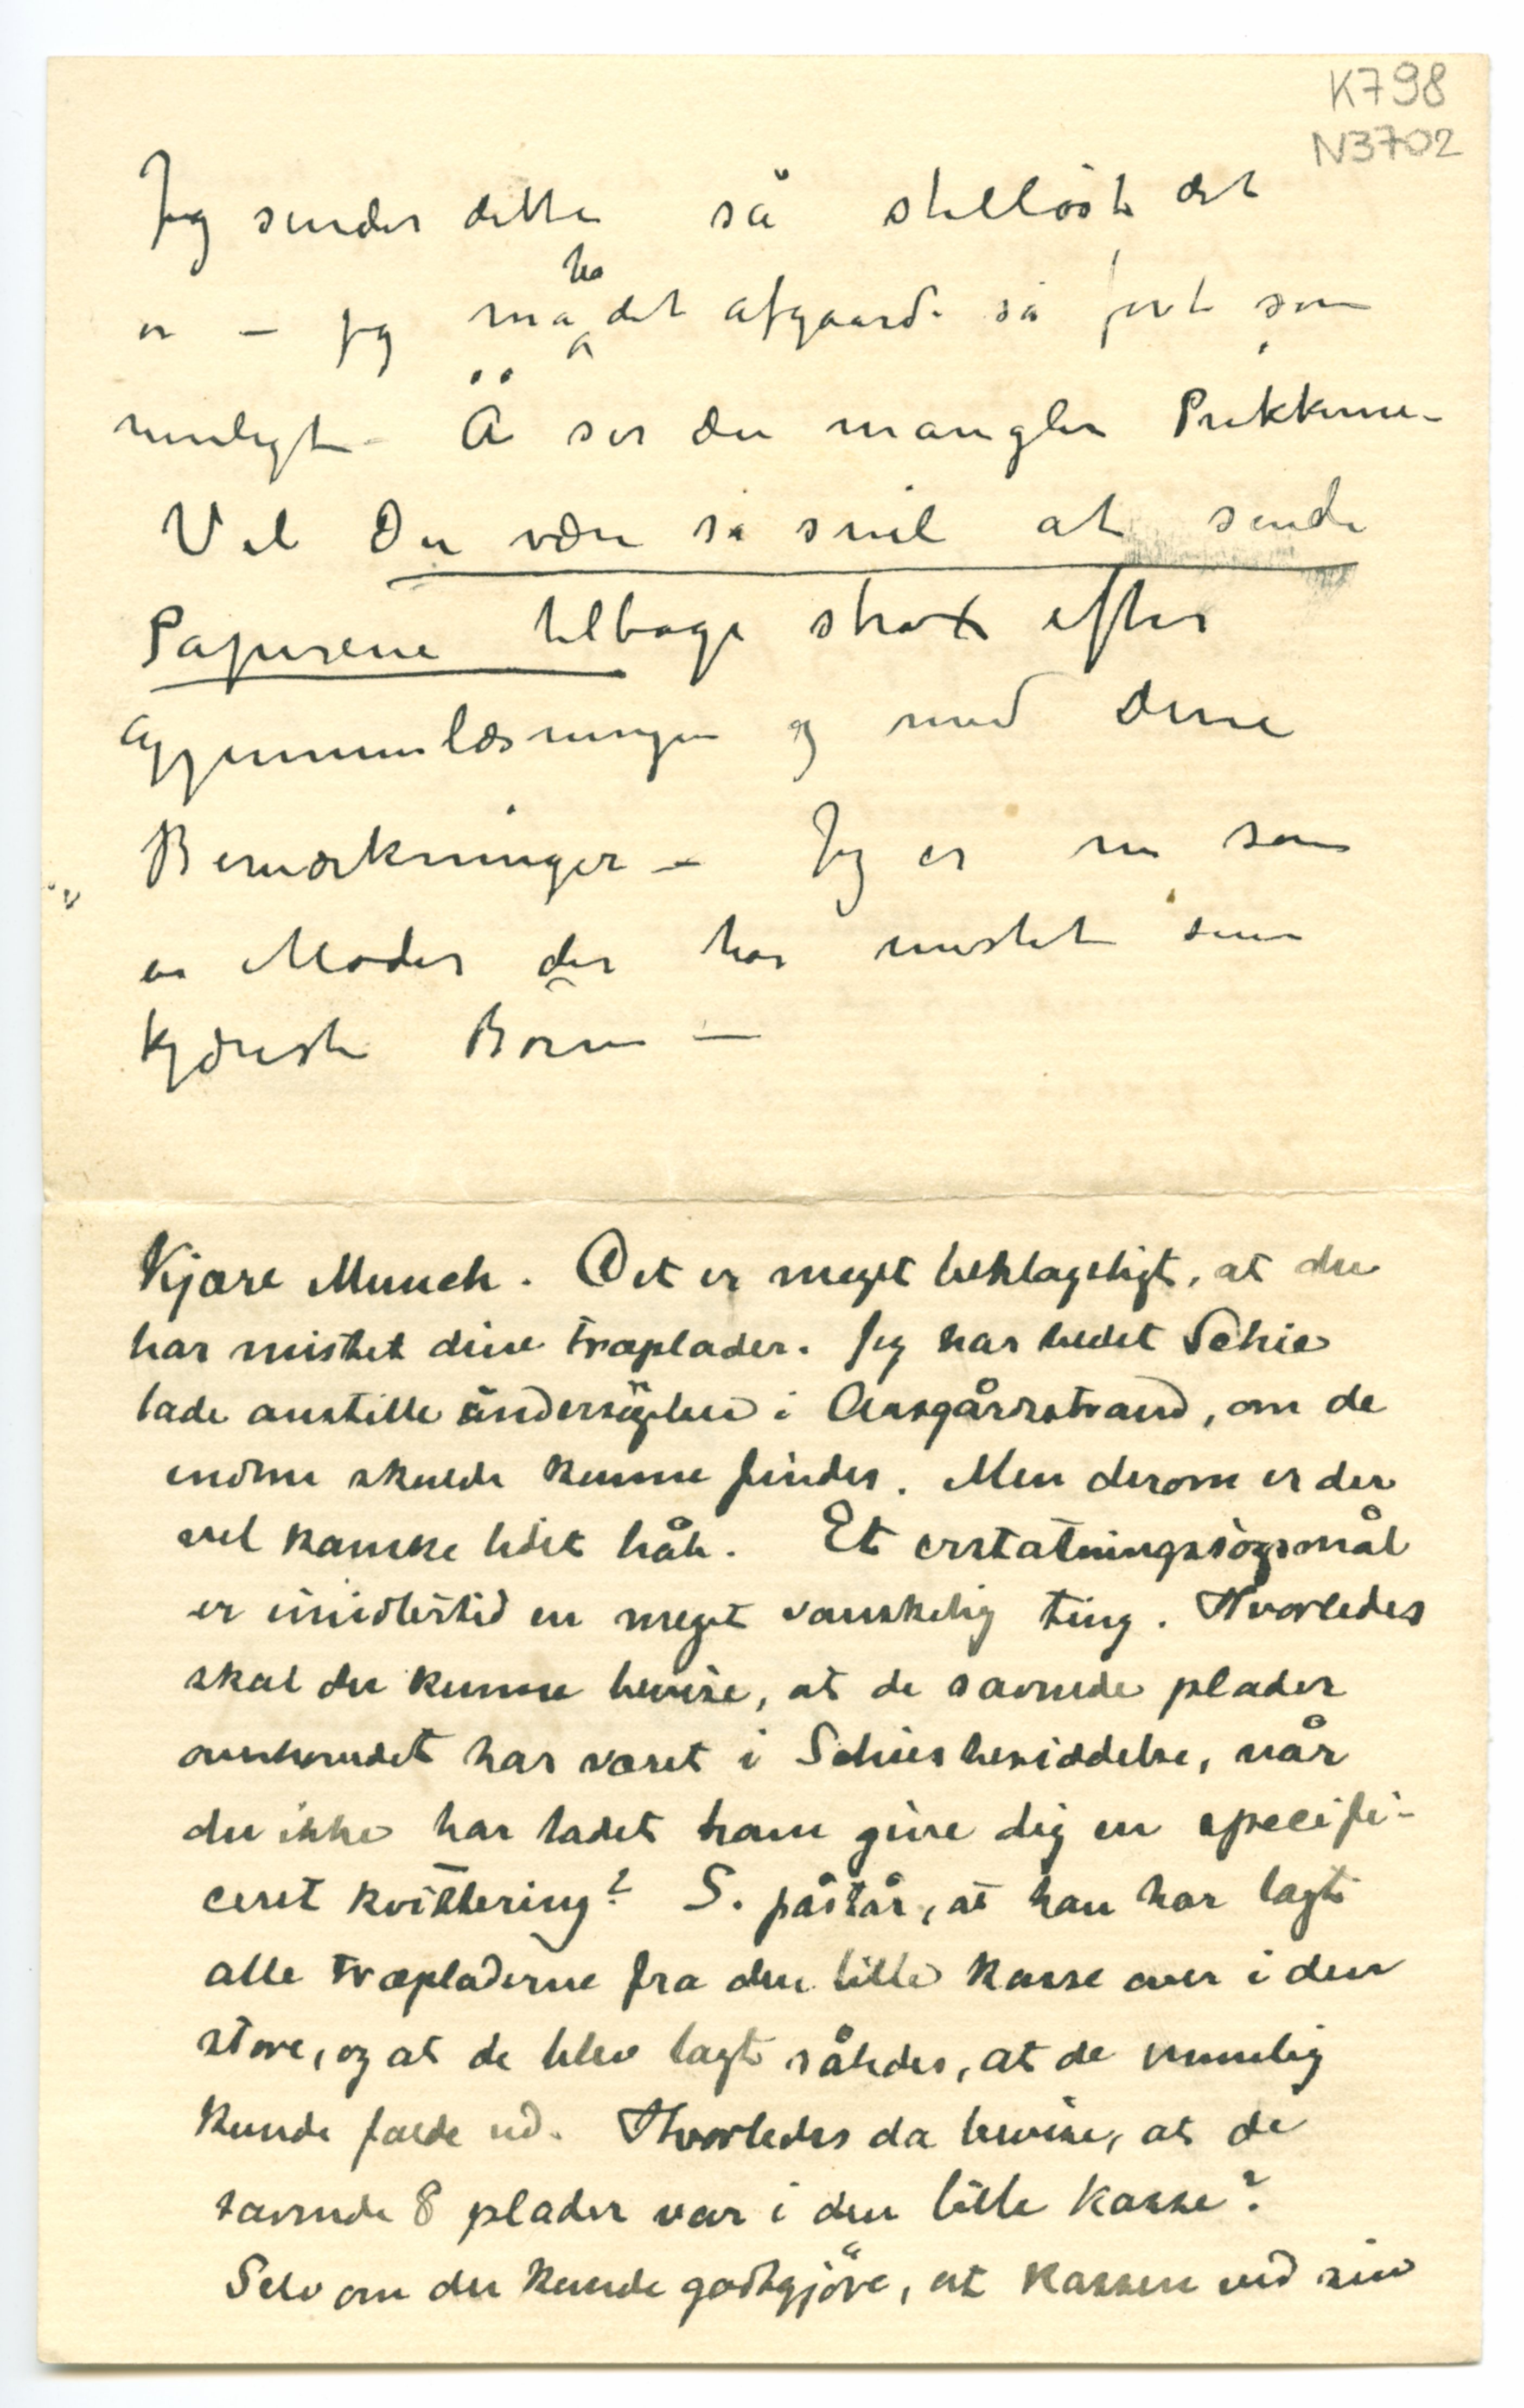 K798
N3702
Jeg sender dette så stilløst det
er – jeg må ha det afgaarde så fort som
muligt – Å ser du mangler Prikkerne –
Vil Du være så snil at sende
Papirene tilbage strax efter
Gjennemlæsningen og med dine
Bemærkninger – Jeg er nu som
en Moder der har mistet sine
kjæreste Börn –
Kjære Munch. Det er meget beklageligt, at du
har mistet dine træplader. Jeg har bedet Schie
lade anstille undersögelser i Aasgårdstrand, om de
endnu skulde kunne findes. Men derom er der
vel kanske lidet håb. Et erstatningssögsmål
er imidlertid en meget vanskelig ting. Hvorledes
skal du kunne bevise, at de savnede plader
overhovedet har været i Schies besiddelse, når
du ikke har ladet ham give dig en specifi-
ceret kvittering? S. påstår, at han har lagt
alle træpladerne fra den lille kasse over i den
store, og at de blev lagt således, at de umulig
kunde falde ud. Hvorledes da bevise, at de
savnede 8 plader var i den lille kasse?
Selv om du kunde godtgjöre, at kassen ved sin